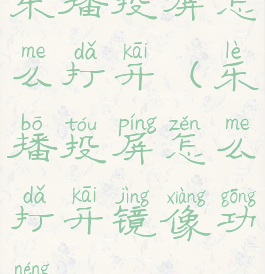 乐播投屏怎
me dǎ kāi lè
么打开（乐
bō tóu píng zěn me
播投屏怎么
dǎ kāi jìng xiàng gōng
打开镜像功
néng